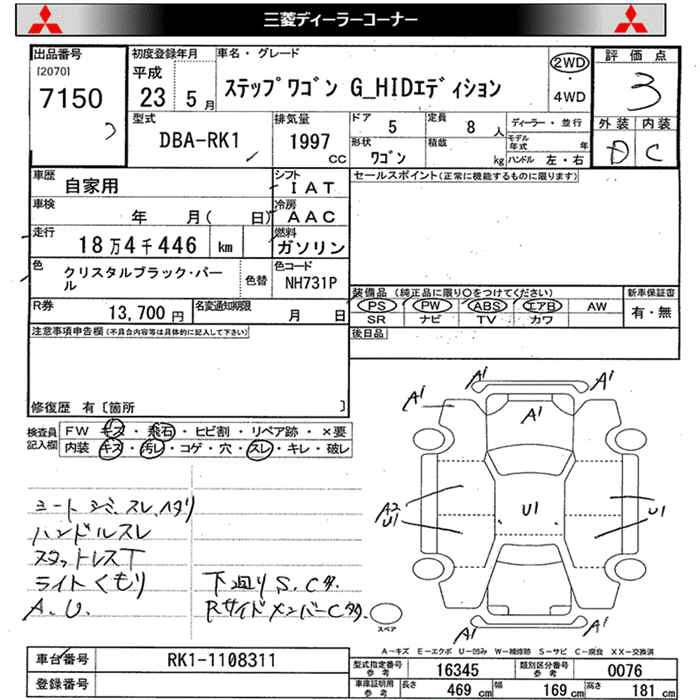 三菱ディーラーコーナー
出品番号 初度登録年月 車名・グレード 評価点
[2070] 平成 ステップワゴン G_HIDエディション 2WD 3
7150 23 5月 ・ 4WD
型式 排気量 ドア 定員 ディーラー・並行 外装 内装
DBA-RK1 1997 CC 5 8人 モデル年式 年 D C
形状 積載 ハンドル 左・右
ワゴン kg
車歴 自家用 シフト IAT セールスポイント(正常に機能するものに限ります)
車検 年 月( 日) 冷房 AAC
走行 18万4千446 km 燃料 ガソリン
色 クリスタルブラック・パール 色替 色コード NH731P
装備品 (純正品に限り○をつけてください) 新車保証書
R券 13,700円 名変通知期限 月 日 PS PW ABS エアB AW 有・無
SR ナビ TV カワ
注意事項申告欄(不具合内容等は具体的に記入して下さい) 後日品
修復歴 有 [箇所 ]
検査員記入欄 FW キズ・飛石・ヒビ割・リペア跡・×要
内装 キズ・汚レ・コゲ・穴・スレ・キレ・破レ
A1 A1 A1 A1
シート シミ、スレ、ヘタリ A2 U1 U1 U1
ハンドルスレ
スタットレスT
ライトくもり 下廻りS、Cタ、
A.U. RサイドメンバーCタ
A1 A1
スペア
A-キズ E-エクボ U-凹み W-補修跡 S-サビ C-腐食 XX-交換済
車台番号 RK1-1108311 型式指定番号 参考 16345 類別区分番号 参考 0076
登録番号 車庫証明用 参考 長さ 469 cm 幅 169 cm 高さ 181 cm